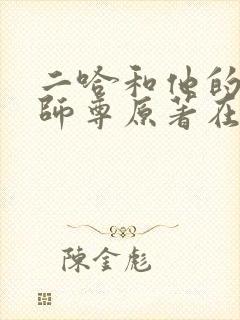 二哈和他的
師尊原著在
陳金彪